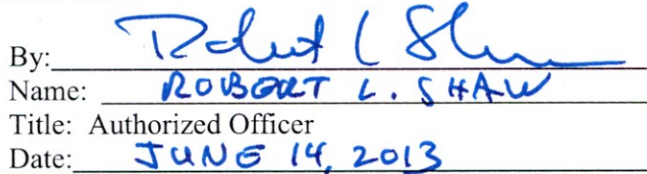 By: Robert L Shaw
Name: ROBERT L. SHAW
Title: Authorized Officer
Date: JUNE 14, 2013